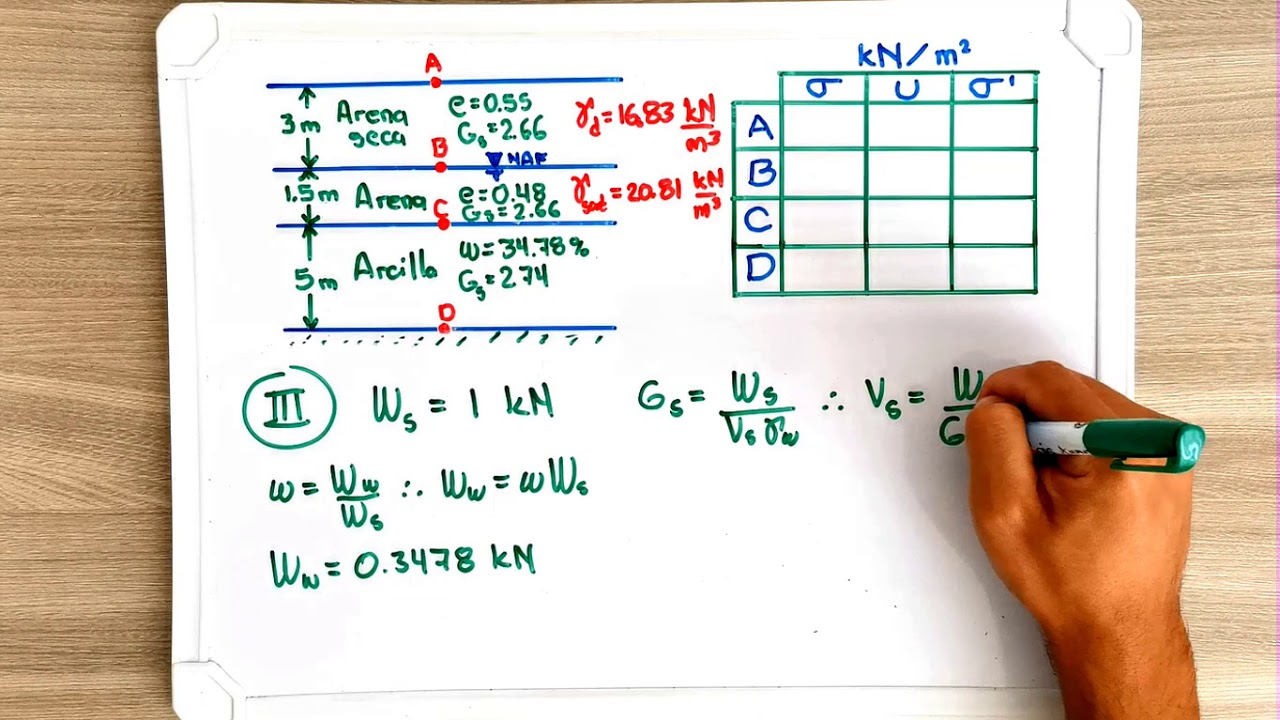 A
3m Arena seca e=0.55 Gs=2.66 γd=16.83 kN/m³
B NAF
1.5m Arena e=0.48 Gs=2.66 γsat=20.81 kN/m³
C
5m Arcilla w=34.78% Gs=2.74
D
kN/m²
σ U σ'
A
B
C
D
III Ws = 1 kN
Gs = Ws/Vsγw ∴ Vs = W/G
ω = Ww/Ws ∴ Ww = ωWs
Ww = 0.3478 kN